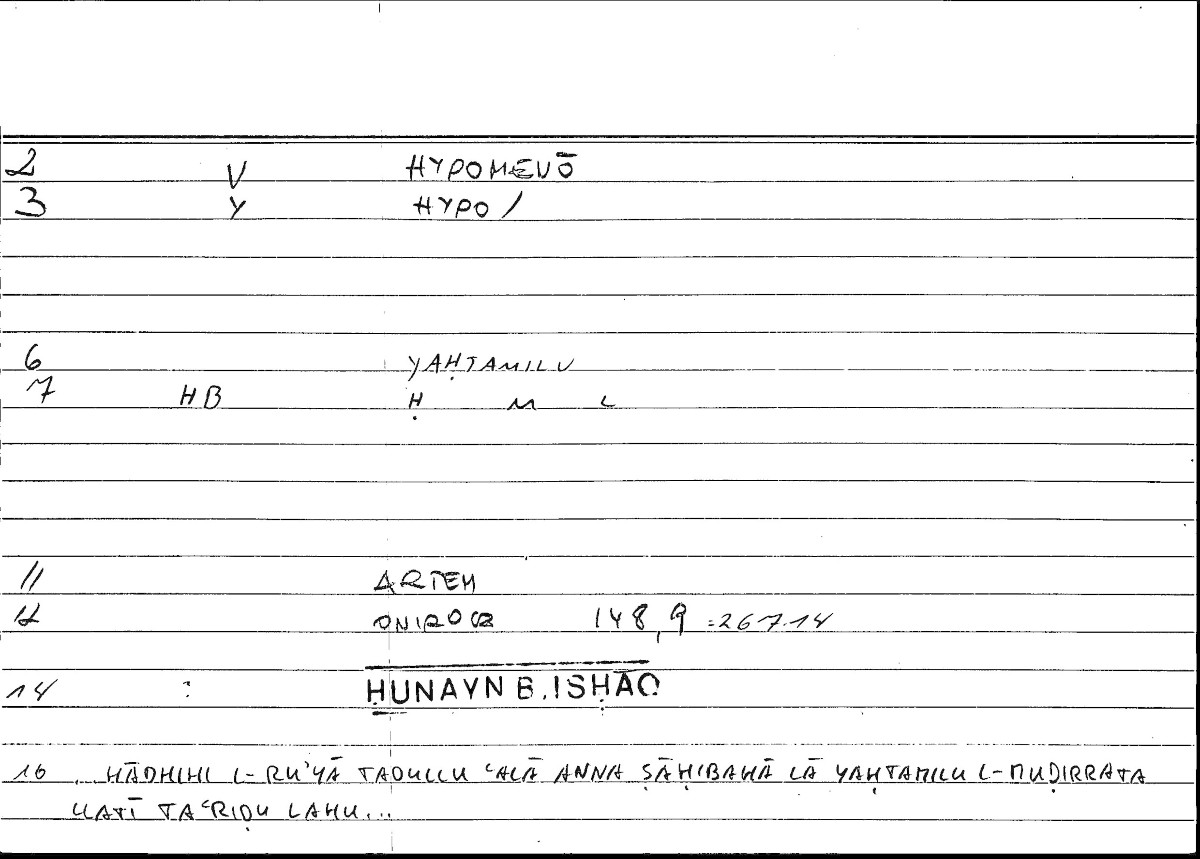 2 V HYPOMENŌ
3 Y HYPO /
6 YAḤTAMILU
7 HB Ḥ M L
11 ARTEM
12 ONIROCR 148,9 = 267.14
14 : ḤUNAYN B. ISḤĀQ
16 ..HĀDHIHI L-RU'YĀ TADULLU ʿALĀ ANNA ṢĀḤIBAHĀ LĀ YAḤTAMILU L-MUḌIRRATA
LLATĪ TAʿRIḌU LAHU...